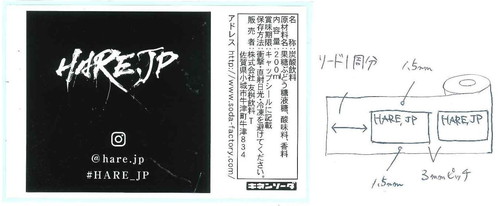 HARE.JP
@hare.jp
#HARE_JP
名 称:炭酸飲料
原材料名:果糖ぶどう糖液糖、酸味料、香料
内 容 量:200ml
賞味期限:キャップシールに記載
保存方法:衝撃・直射日光・冷凍を避けてください。
販 売 者:株式会社 友桝飲料 T
佐賀県小城市牛津町牛津834
アドレス http://www.soda-factory.com/
キネンソーダ
リード1周分
1.5mm
HARE,JP
HARE,JP
1.5mm
3mmピッチ